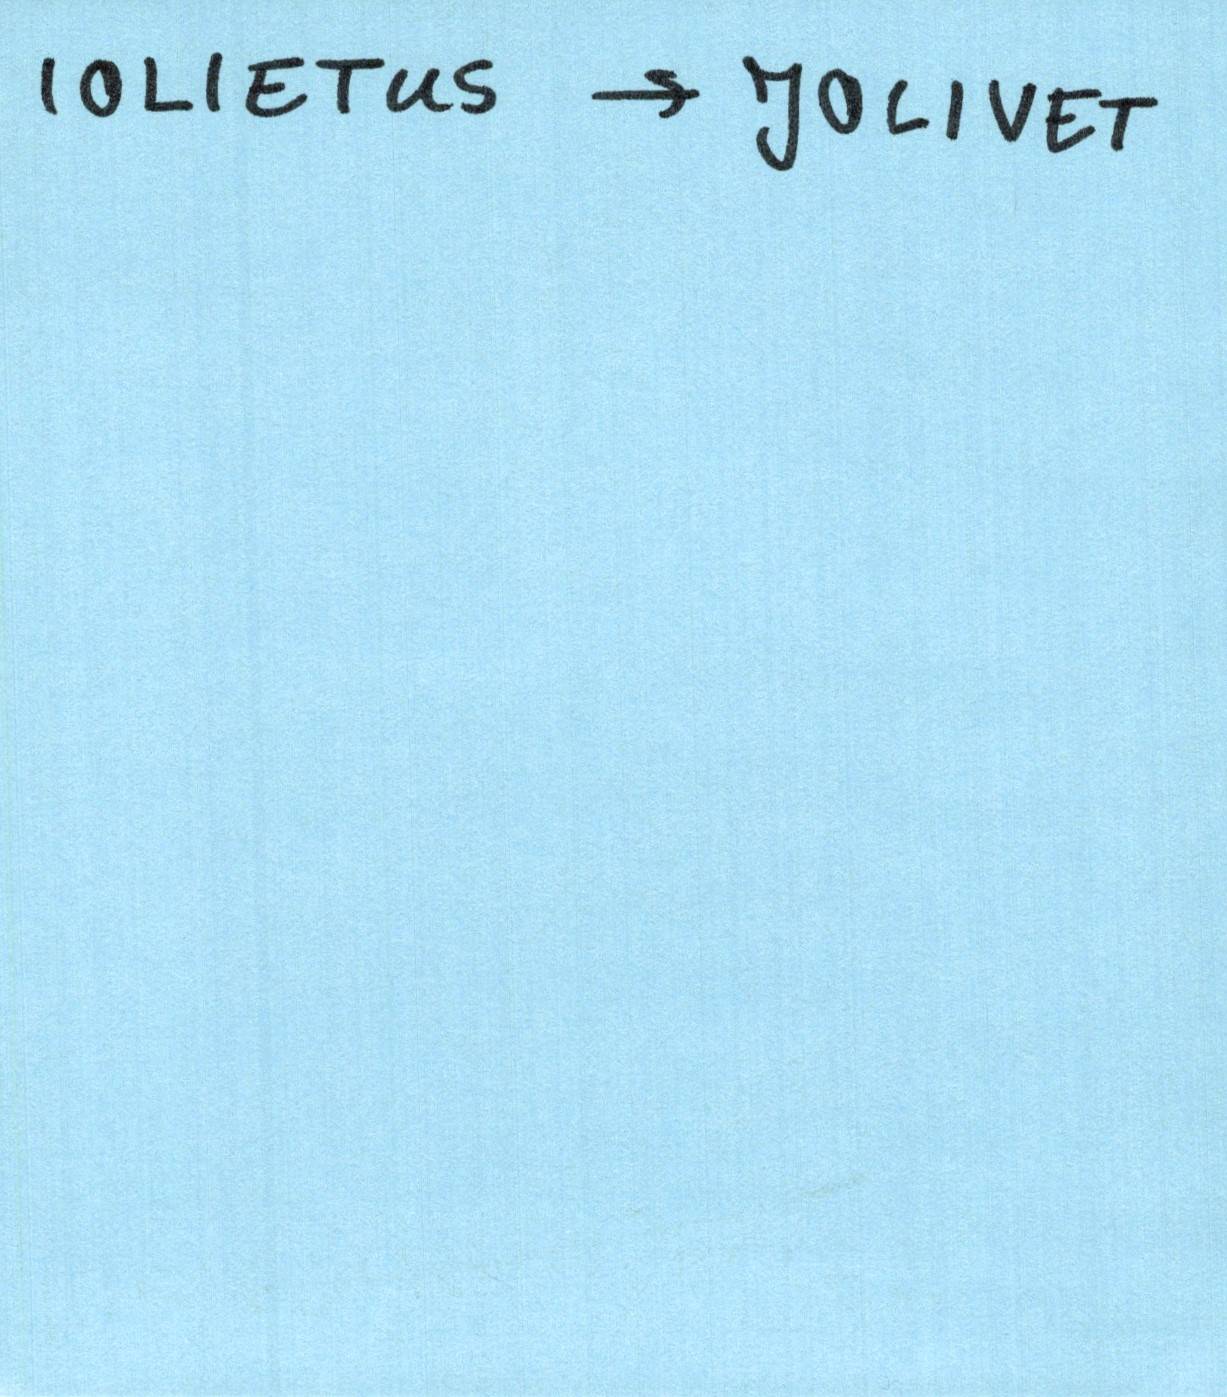 IOLIETUS → JOLIVET